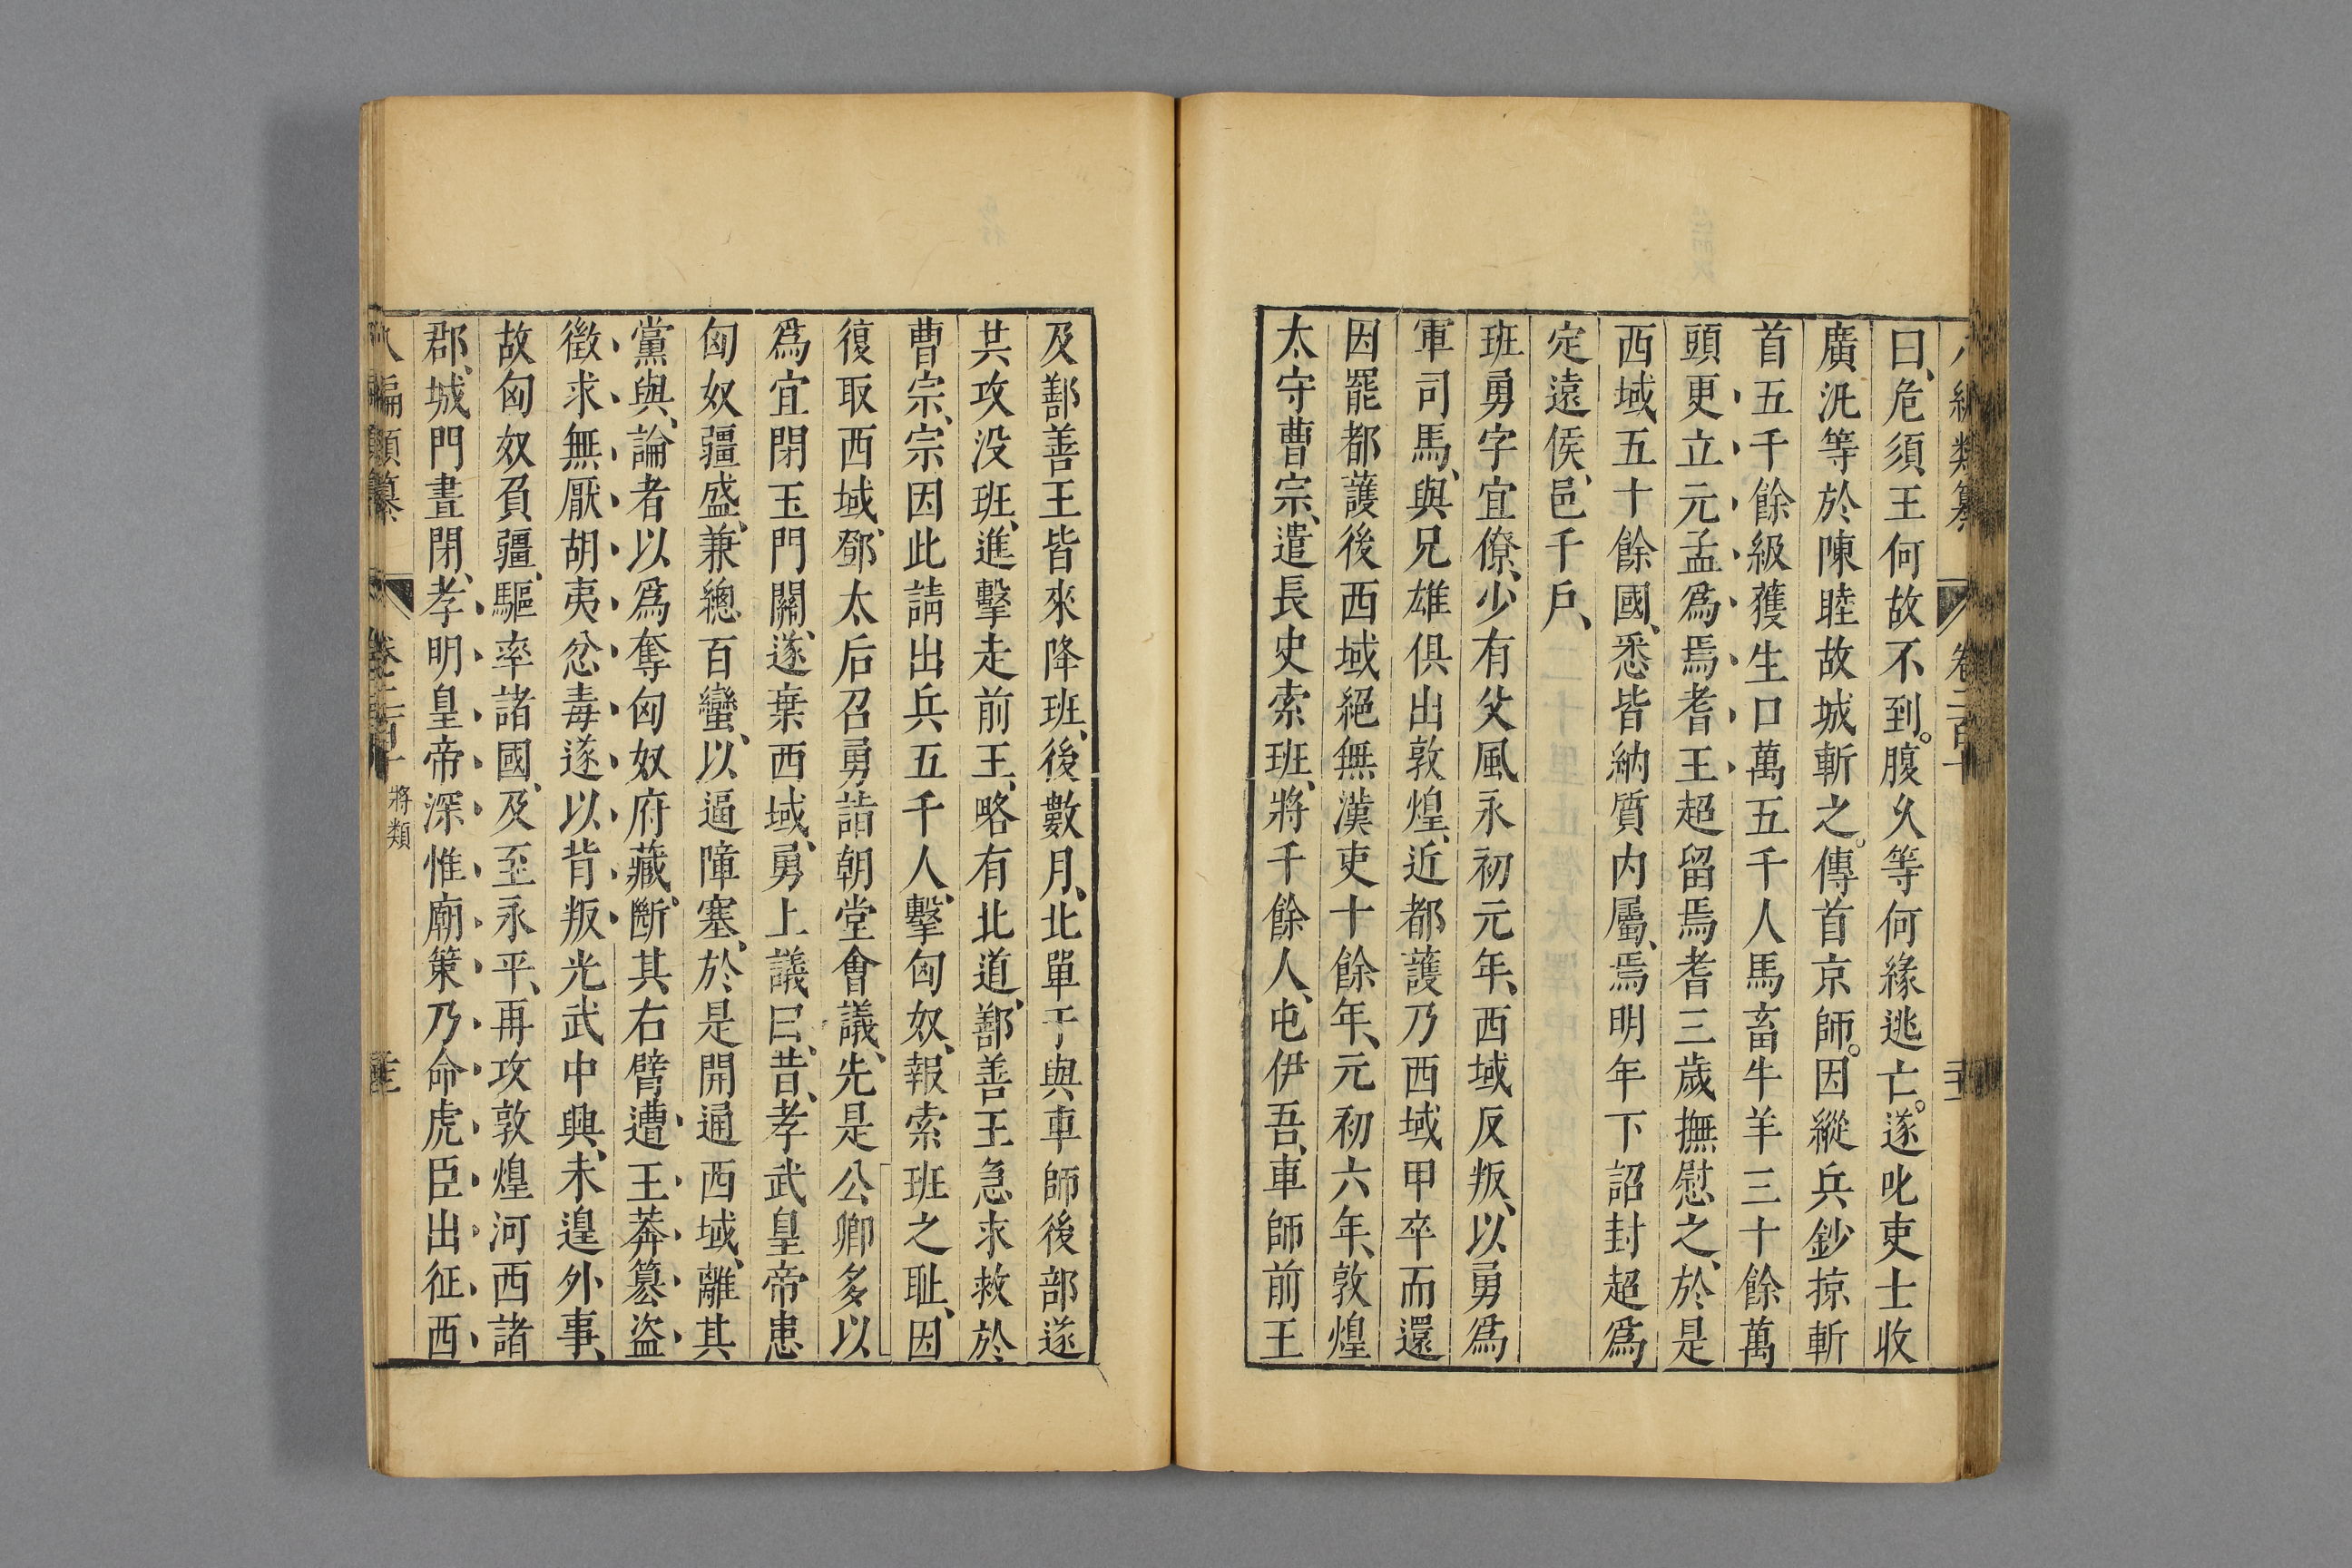 曰、危須王何故不到。腹久等何緣逃亡。遂叱吏士收
廣汎等於陳睦故城斬之。傳首京師。因縱兵鈔掠斬
首五千餘級獲生口萬五千人馬畜牛羊三十餘萬
頭更立元孟爲焉耆王超留焉耆三歲撫慰之、於是
西域五十餘國、悉皆納質内屬、焉明年下詔封超爲
定遠侯、邑千戶、
班勇字宜僚、少有父風永初元年、西域反叛、以勇爲
軍司馬、與兄雄俱出敦煌、近都護乃西域甲卒而還
因罷都護後西域絕無漢吏十餘年、元初六年、敦煌
太守曹宗、遣長史索班、將千餘人、屯伊吾、車師前王
及鄯善王皆來降班、後數月、北單于與車師後部遂
共攻没班、進擊走前王、略有北道、鄯善王急求救於
曹宗、宗因此請出兵五千人、擊匈奴、報索班之耻、因
復取西域、鄧太后召勇詣朝堂會議、先是公卿多以
爲宜閉玉門關、遂棄西域、勇上議曰、昔、孝武皇帝患
匈奴疆盛、兼總百蠻、以逼障塞、於是開通西域、離其
黨與、論者以爲奪匈奴府藏、斷其右臂遭王莽簒盜
徵求無厭胡夷忿毒遂以背叛光武中興、未遑外事、
故匈奴負疆、驅率諸國、及至永平、再攻敦煌河西諸
郡、城門晝閉、孝明皇帝深惟廟策乃命虎臣出征西
八編類纂 將類